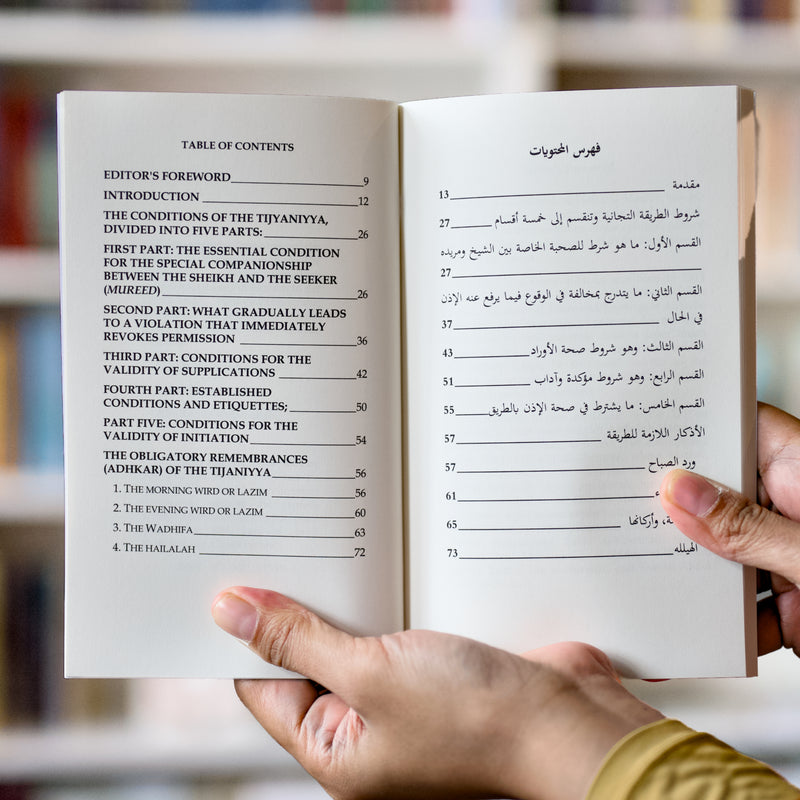 TABLE OF CONTENTS
EDITOR'S FOREWORD 9
INTRODUCTION 12
THE CONDITIONS OF THE TIJYANIYYA,
DIVIDED INTO FIVE PARTS: 26
FIRST PART: THE ESSENTIAL CONDITION
FOR THE SPECIAL COMPANIONSHIP
BETWEEN THE SHEIKH AND THE SEEKER
(MUREED) 26
SECOND PART: WHAT GRADUALLY LEADS
TO A VIOLATION THAT IMMEDIATELY
REVOKES PERMISSION 36
THIRD PART: CONDITIONS FOR THE
VALIDITY OF SUPPLICATIONS 42
FOURTH PART: ESTABLISHED
CONDITIONS AND ETIQUETTES; 50
PART FIVE: CONDITIONS FOR THE
VALIDITY OF INITIATION 54
THE OBLIGATORY REMEMBRANCES
(ADHKAR) OF THE TIJANIYYA 56
1. THE MORNING WIRD OR LAZIM 56
2. THE EVENING WIRD OR LAZIM 60
3. THE WADHIFA 63
4. THE HAILALAH 72
فهرس المحتويات
مقدمة 13
شروط الطريقة التجانية وتنقسم إلى خمسة أقسام 27
القسم الأول: ما هو شرط للصحبة الخاصة بين الشيخ ومريده
27
القسم الثاني: ما يتدرج بمخالفة في الوقوع فيما يرفع عنه الإذن
في الحال 37
القسم الثالث: وهو شروط صحة الأوراد 43
القسم الرابع: وهو شروط مؤكدة وآداب 51
القسم الخامس: ما يشترط في صحة الإذن بالطريق 55
الأذكار اللازمة للطريقة 57
ورد الصباح 57
61
وأركانها 65
الهيلله 73